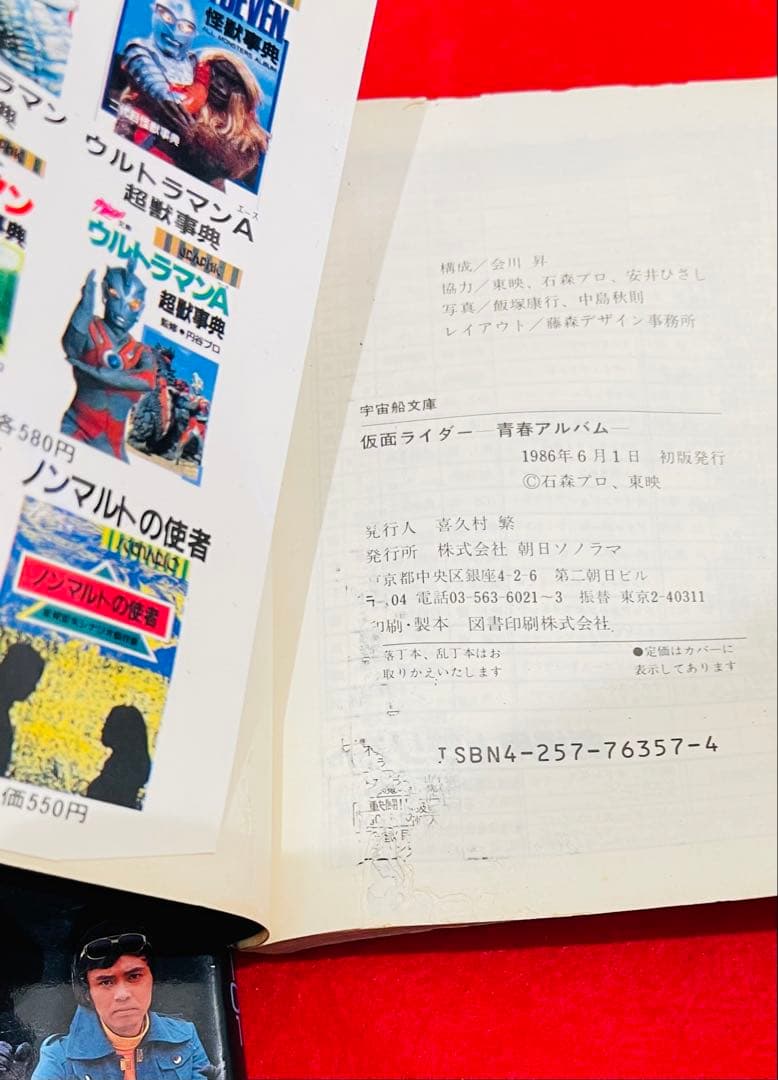 SEVEN
怪獣事典
ALL MONSTERS ALBUM
ウルトラマンA
エース
超獣事典
ウルトラマンA
超獣事典
監修●円谷プロ
各580円
ノンマルトの使者
ノンマルトの使者
価550円
構成/会川 昇
協力/東映、石森プロ、安井ひさし
写真/飯塚康行、中島秋則
レイアウト/藤森デザイン事務所
宇宙船文庫
仮面ライダー―青春アルバム―
1986年6月1日 初版発行
©石森プロ、東映
発行人 喜久村 繁
発行所 株式会社 朝日ソノラマ
京都中央区銀座4-2-6 第二朝日ビル
04 電話03-563-6021~3 振替 東京2-40311
印刷・製本 図書印刷株式会社
落丁本、乱丁本はお
取りかえいたします
●定価はカバーに
表示してあります
ISBN4-257-76357-4